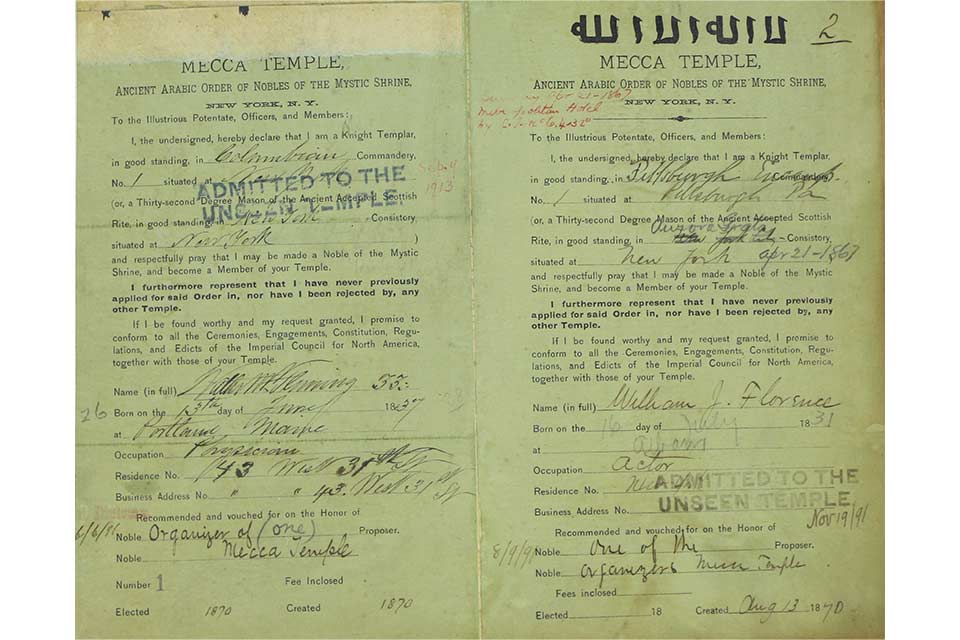 MECCA TEMPLE,
ANCIENT ARABIC ORDER OF NOBLES OF THE MYSTIC SHRINE,
NEW YORK, N. Y.
To the Illustrious Potentate, Officers, and Members:
I, the undersigned, hereby declare that I am a Knight Templar,
in good standing, in Columbian Commandery,
No. 1 situated at New York
Feb. 9
1913
ADMITTED TO THE
UNSEEN TEMPLE.
(or, a Thirty-second Degree Mason of the Ancient Accepted Scottish
Rite, in good standing, in New York Consistory,
situated at New York )
and respectfully pray that I may be made a Noble of the Mystic
Shrine, and become a Member of your Temple.
I furthermore represent that I have never previously
applied for said Order in, nor have I been rejected by, any
other Temple.
If I be found worthy and my request granted, I promise to
conform to all the Ceremonies, Engagements, Constitution, Regu-
lations, and Edicts of the Imperial Council for North America,
together with those of your Temple.
Name (in full) Walter M. Fleming 33:
26 Born on the 13th day of June 1837
at Portland Maine
Occupation Physician
Residence No. 143 West 31st St
Business Address No " " 43. West 31st St
Recommended and vouched for on the Honor of
6/6/91
Noble Organizer of (one) Proposer.
Noble Mecca Temple
Number 1 Fee Inclosed
Elected 1870 Created 1870
2
MECCA TEMPLE,
ANCIENT ARABIC ORDER OF NOBLES OF THE MYSTIC SHRINE,
NEW YORK, N. Y.
Apr 21-1867
Metropolitan Hotel
To the Illustrious Potentate, Officers, and Members:
I, the undersigned, hereby declare that I am a Knight Templar,
in good standing, in Pittsburgh Encamp. Commandery,
No. 1 situated at Pittsburgh Pa
(or, a Thirty-second Degree Mason of the Ancient Accepted Scottish
Aurora Grata
Rite, in good standing, in New York City Consistory,
situated at New York Apr 21-1867
and respectfully pray that I may be made a Noble of the Mystic
Shrine, and become a Member of your Temple.
I furthermore represent that I have never previously
applied for said Order in, nor have I been rejected by, any
other Temple.
If I be found worthy and my request granted, I promise to
conform to all the Ceremonies, Engagements, Constitution, Regu-
lations, and Edicts of the Imperial Council for North America,
together with those of your Temple.
Name (in full) William J. Florence
Born on the 16 day of July 1831
at Albany
Occupation Actor
Residence No. New York
ADMITTED TO THE
UNSEEN TEMPLE.
Business Address No.
Nov 19/91
Recommended and vouched for on the Honor of
8/9/9
Noble One of the Proposer.
Noble organizers Mecca Temple
Fees inclosed
Elected 18 Created Aug 13 1870